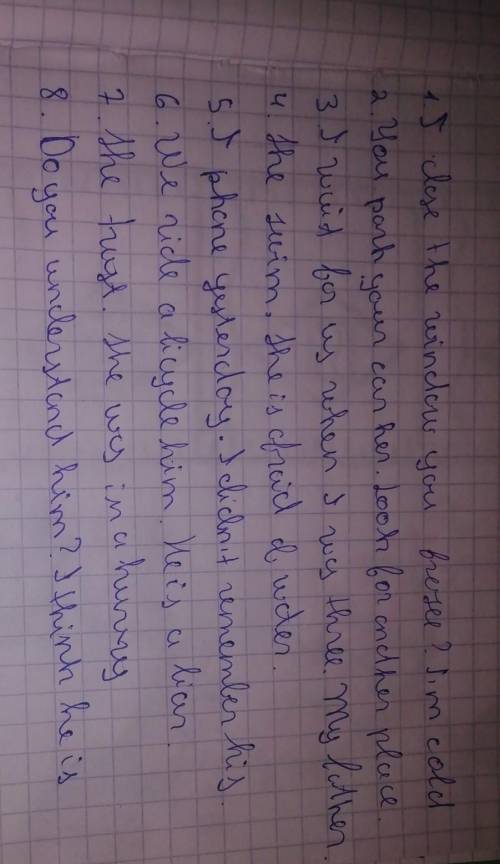 1. I close the window you freeze? I'm cold
2. You park your car her. Look for another place.
3. I wait for us when I was three. My father.
4. She swim. She is afraid of water.
5. I phone yesterday. I didn't remember his.
6. We ride a bicycle him. He is a liar.
7. She . She was in a hurry
8. Do you understand him? I think he is